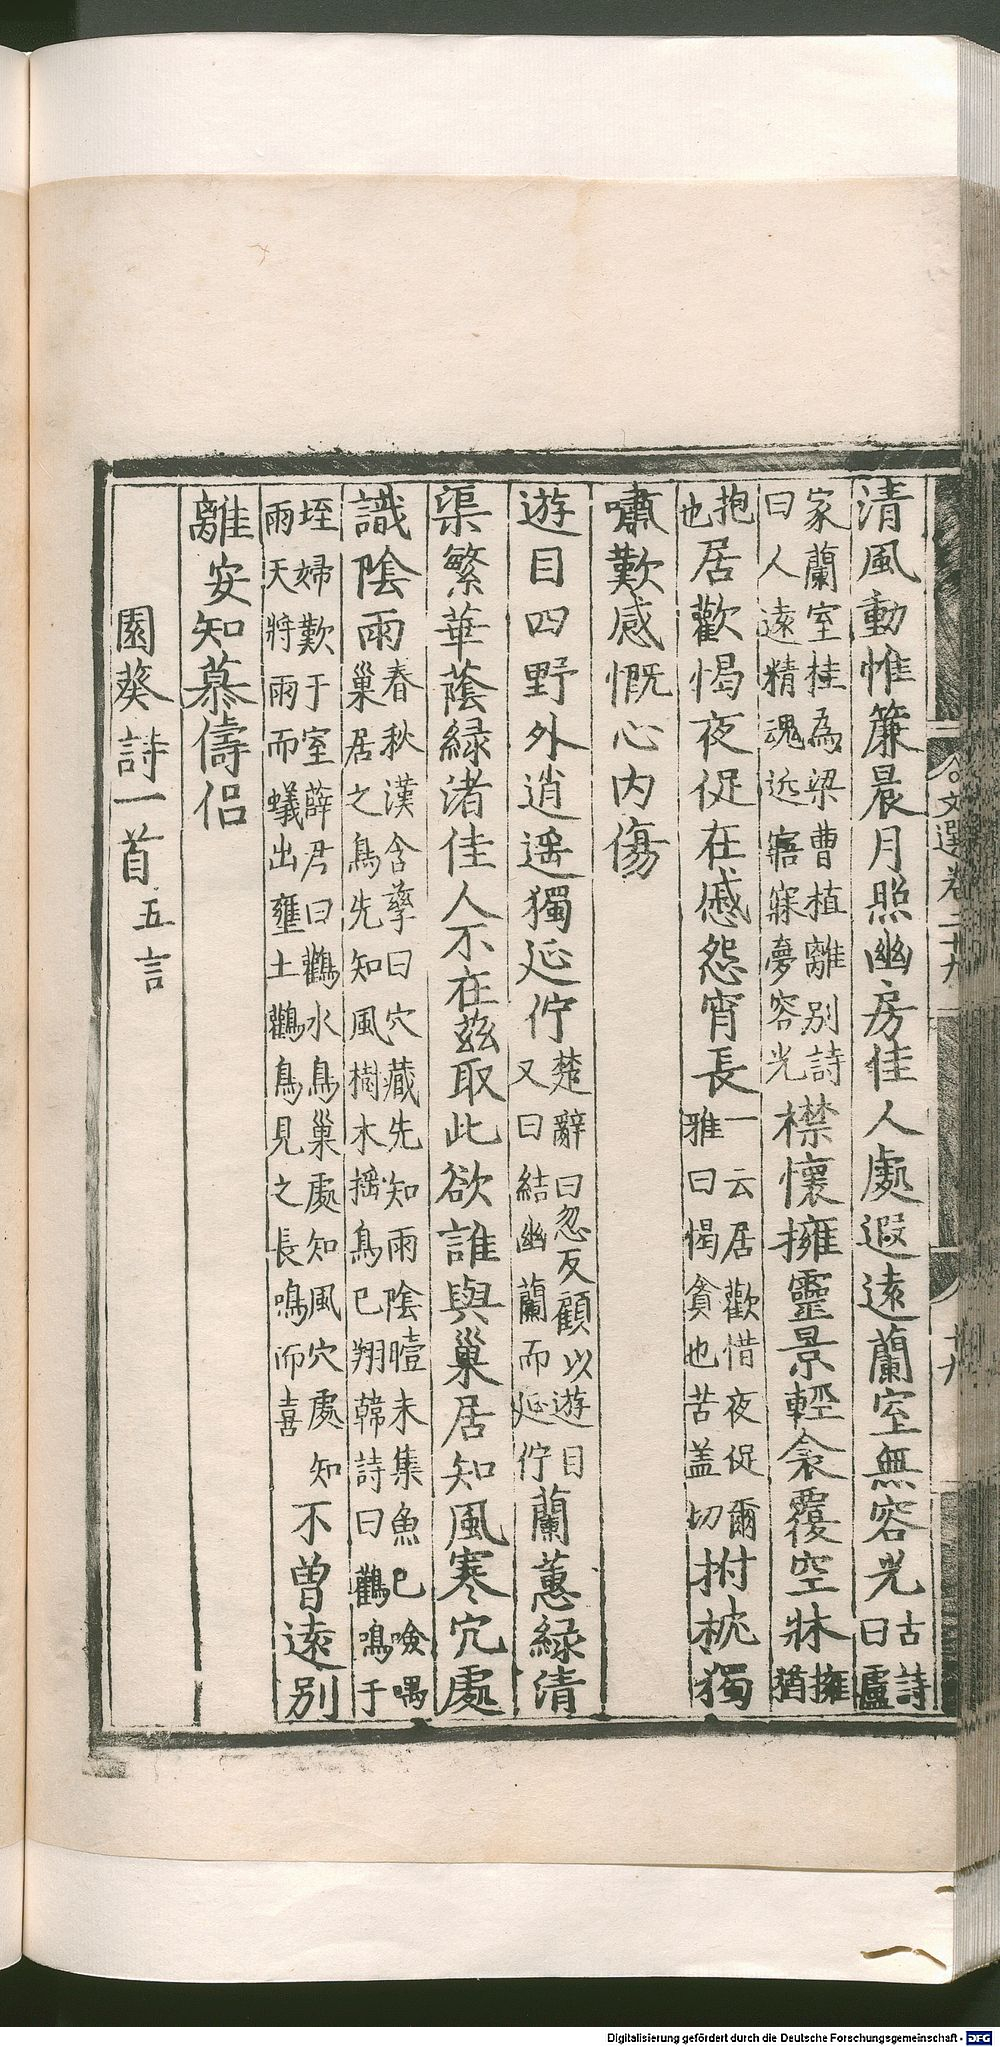 清風動帷簾晨月照幽房佳人處遐遠蘭室無容光古詩曰盧
家蘭室桂為梁曹植離別詩曰人遠精魂近寤寐夢容光襟懷擁靈景輕衾覆空牀擁猶
抱也居歡愒夜促在慼怨宵長一云居歡惜夜促爾雅曰愒貪也苦盖切拊枕獨
嘯歎感慨心內傷
遊目四野外逍遥獨延佇楚辭曰忽反顧以遊目又曰結幽蘭而延佇蘭蕙緑清
渠繁華蔭緑渚佳人不在兹取此欲誰與巢居知風寒穴處
識陰雨春秋漢含孳曰穴藏先知雨陰曀未集魚已噞喁巢居之鳥先知風樹木揺鳥已翔韓詩曰鸛鳴于
垤婦歎于室薛君曰鸛水鳥巢處知風穴處知雨天將雨而蟻出壅土鸛鳥見之長鳴而喜不曽遠別
離安知慕儔侣
園葵詩一首五言
文選卷二十九
十九
Digitalisierung gefördert durch die Deutsche Forschungsgemeinschaft - DFG